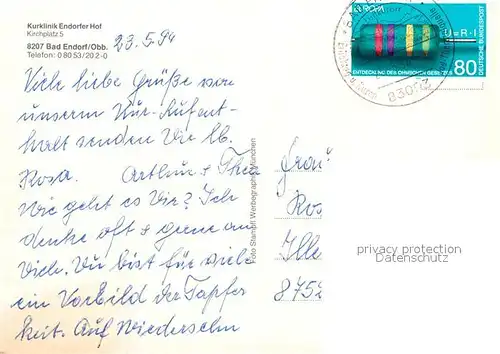 Kurklinik Endorfer Hof
Kirchplatz 5
8207 Bad Endorf/Obb.
Telefon: 0 80 53/20 2-0
23.5.94
Viele liebe Grüße von
unserem Kur-Aufent-
halt senden Dir lb.
Rosa. Arthur + Thea
Wie geht es Dir? Ich
denke oft + gerne an
Dich. Du bist für viele
ein Vorbild der Tapfer
keit. Auf Wiedersehn
Foto Stampfl Werbegraphik München
EUROPA
U=R·I
ENTDECKUNG DES OHMSCHEN GESETZES
80
DEUTSCHE BUNDESPOST
BAD
8309
Frau
Ros
Ille
8752
privacy protection
Datenschutz